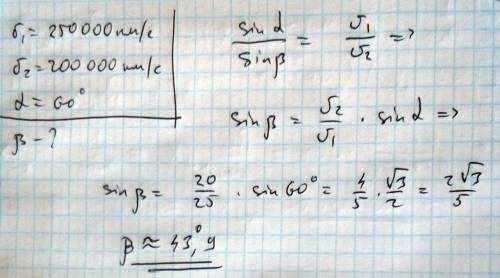 υ₁ = 250 000 км/с
υ₂ = 200 000 км/с
α = 60°
β - ?
sinα / sinβ = υ₁ / υ₂ =>
sinβ = υ₂ / υ₁ · sinα =>
sinβ = 20/25 · sin60° = 4/5 · √3/2 = 2√3/5
β ≈ 43,°9